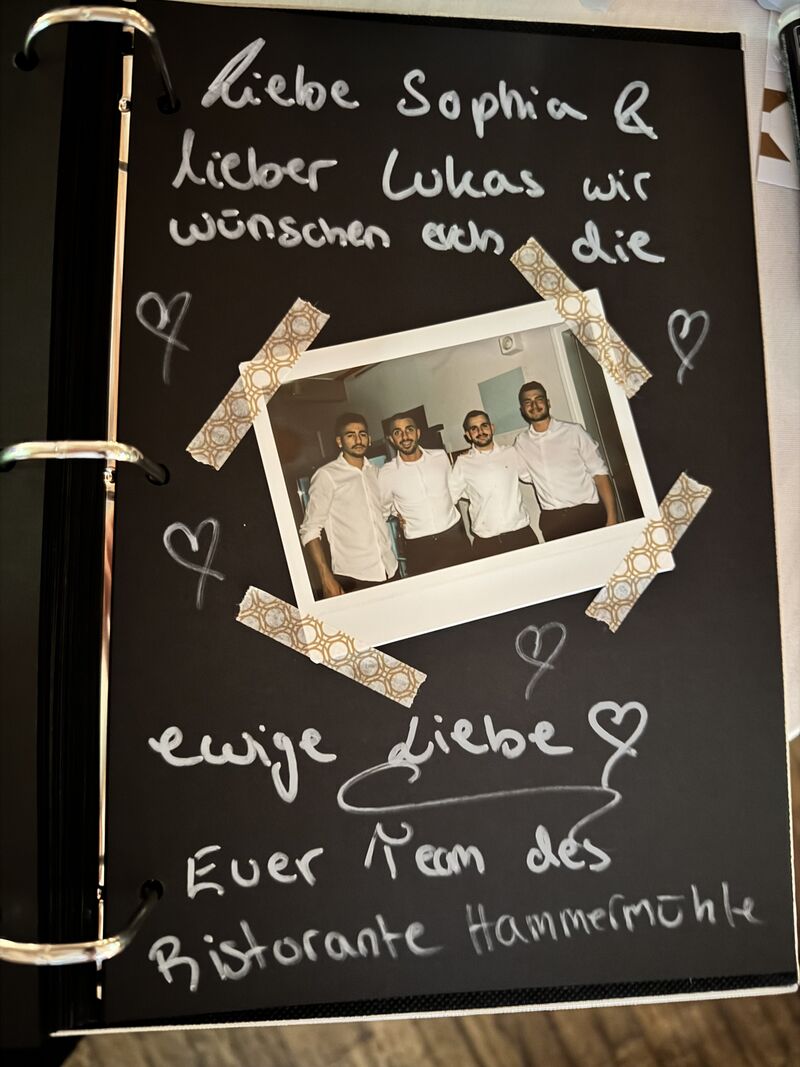 Liebe Sophia &
lieber Lukas wir
wünschen euch die
ewige Liebe
Euer Team des
Ristorante Hammermühle